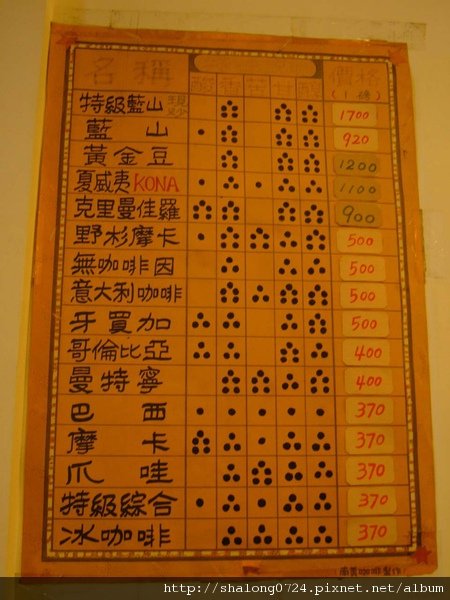 名稱 酸 香 苦 甘 醇 價格
(1磅)
特級藍山 現炒 1700
藍山 920
黃金豆 1200
夏威夷KONA 1100
克里曼佳羅 900
野杉摩卡 500
無咖啡因 500
意大利咖啡 500
牙買加 500
哥倫比亞 400
曼特寧 400
巴西 370
摩卡 370
爪哇 370
特級綜合 370
冰咖啡 370
咖啡製作
http://shalong0724.pixnet.net/album